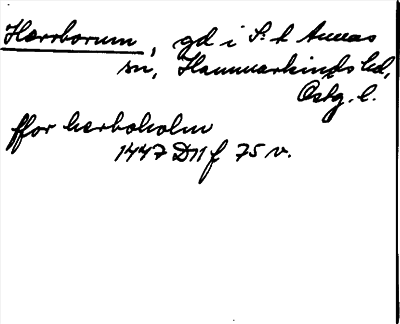 Harrborum, gd i S:t Annas
sn, Hammarkinds hd,
Östg. l.
ffor herboholm
1447 D11 f 75 v.